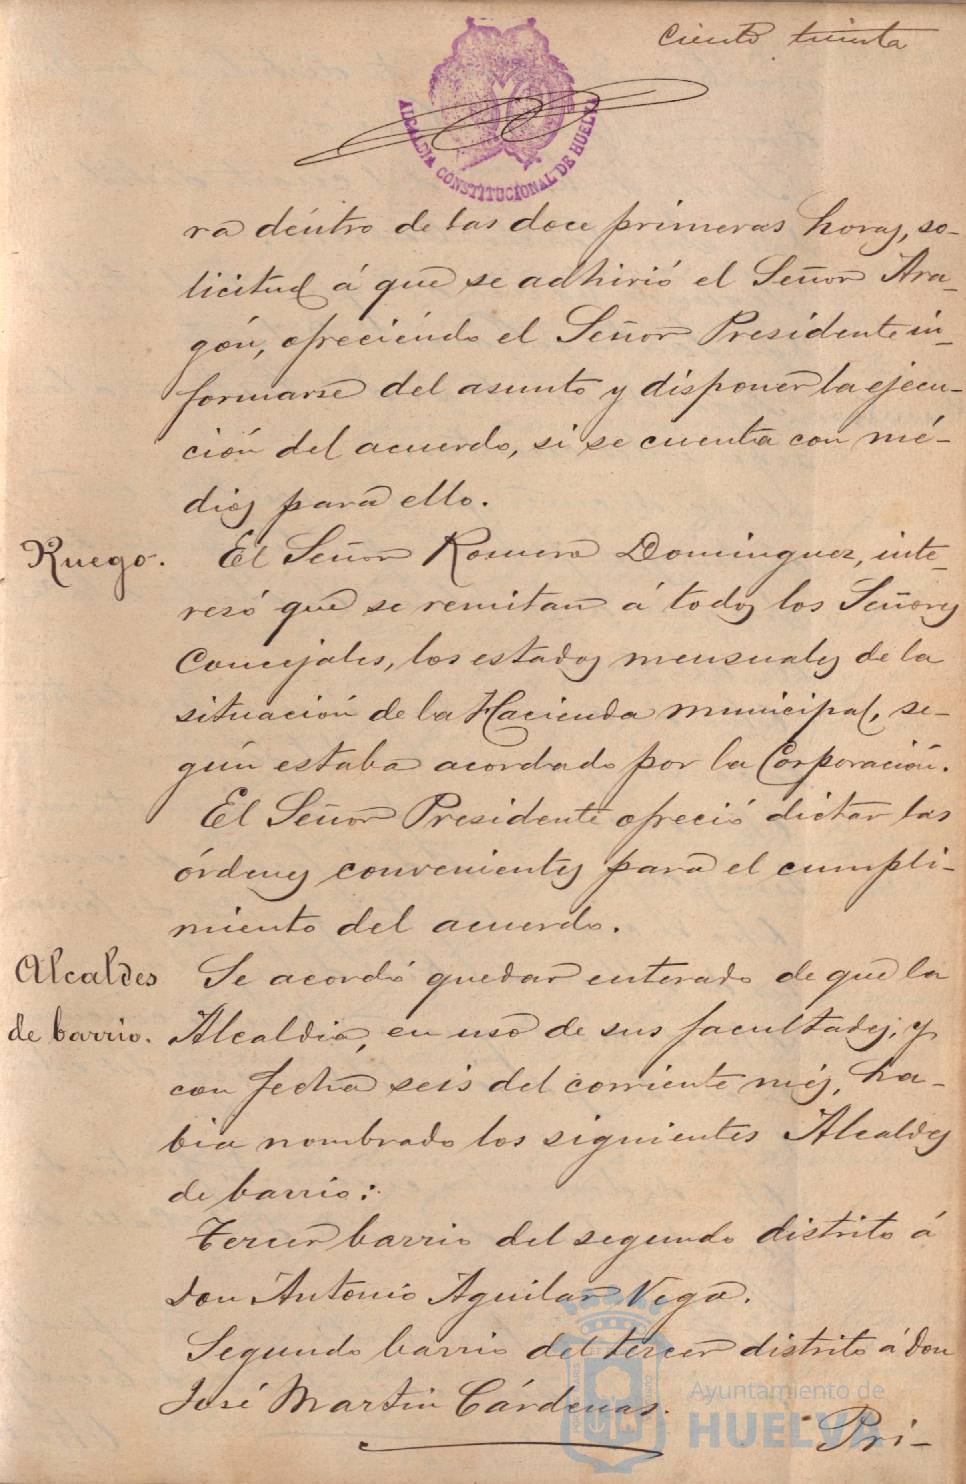 Ciento treinta
ALCALDIA CONSTITUCIONAL DE HUELVA
ra déntro de las doce primeras horas, so-
licitud á que se adhirió el Señor Ara-
gón, ofreciéndo el Señor Presidente in-
formarse del asunto y disponer la ejecu-
ción del acuerdo, si se cuenta con mé-
dios para ello.
Ruego. El Señor Romero Dominguez, inte-
resó que se remitan á todos los Señores
Concejales, los estados mensuales de la
situación de la Hacienda municipal, se-
gún estaba acordado por la Corporación.
El Señor Presidente ofreció dictar las
órdenes convenientes para el cumpli-
miento del acuerdo.
Alcaldes Se acordó quedar enterado de que la
de barrio. Alcaldia, en uso de sus facultades, y
con fecha seis del corriente més, ha-
bia nombrado los siguientes Alcaldes
de barrio:
Tercer barrio del segundo distrito á
Don Antonio Aguilar Vega.
Segundo barrio del tercer distrito á Don
José Martin Cárdenas.
Pri-
Ayuntamiento de
HUELVA